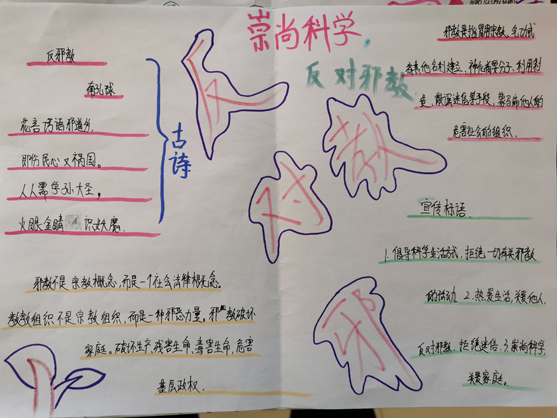 崇尚科学,
反对邪教
反邪教
危言诱语邪道多,
即伤民心又祸国。
人人需学孙大圣,
火眼金睛识妖魔。
古诗
反
对
邪
教
邪教是指冒用宗教、气功或
者其他名义建立、神化首要分子、利用制
造、散布迷信等手段
危害社会的组织.
宣传标语.
1.倡导科学生活方式,拒绝一切有关邪教
的活动 2.热爱生活,
反对邪教,拒绝迷信.3.崇尚科学,
关爱家庭。
邪教不是宗教概念,而是一个社会法律概念.
教组织不是宗教组织,而是一种邪恶力量。邪教破坏
家庭。破坏生产,残害生命,毒害生命,危害
基层政权.